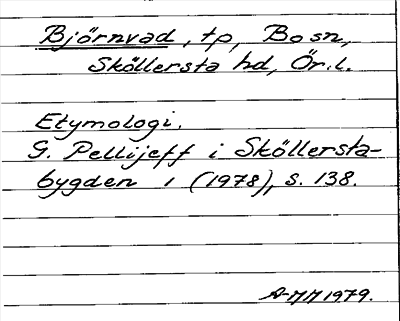 Björnvad, tp, Bo sn,
Sköllersta hd, Ör.l.
Etymologi.
G. Pellijeff i Sköllersta-
bygden 1 (1978), s. 138.
A-MM 1979.